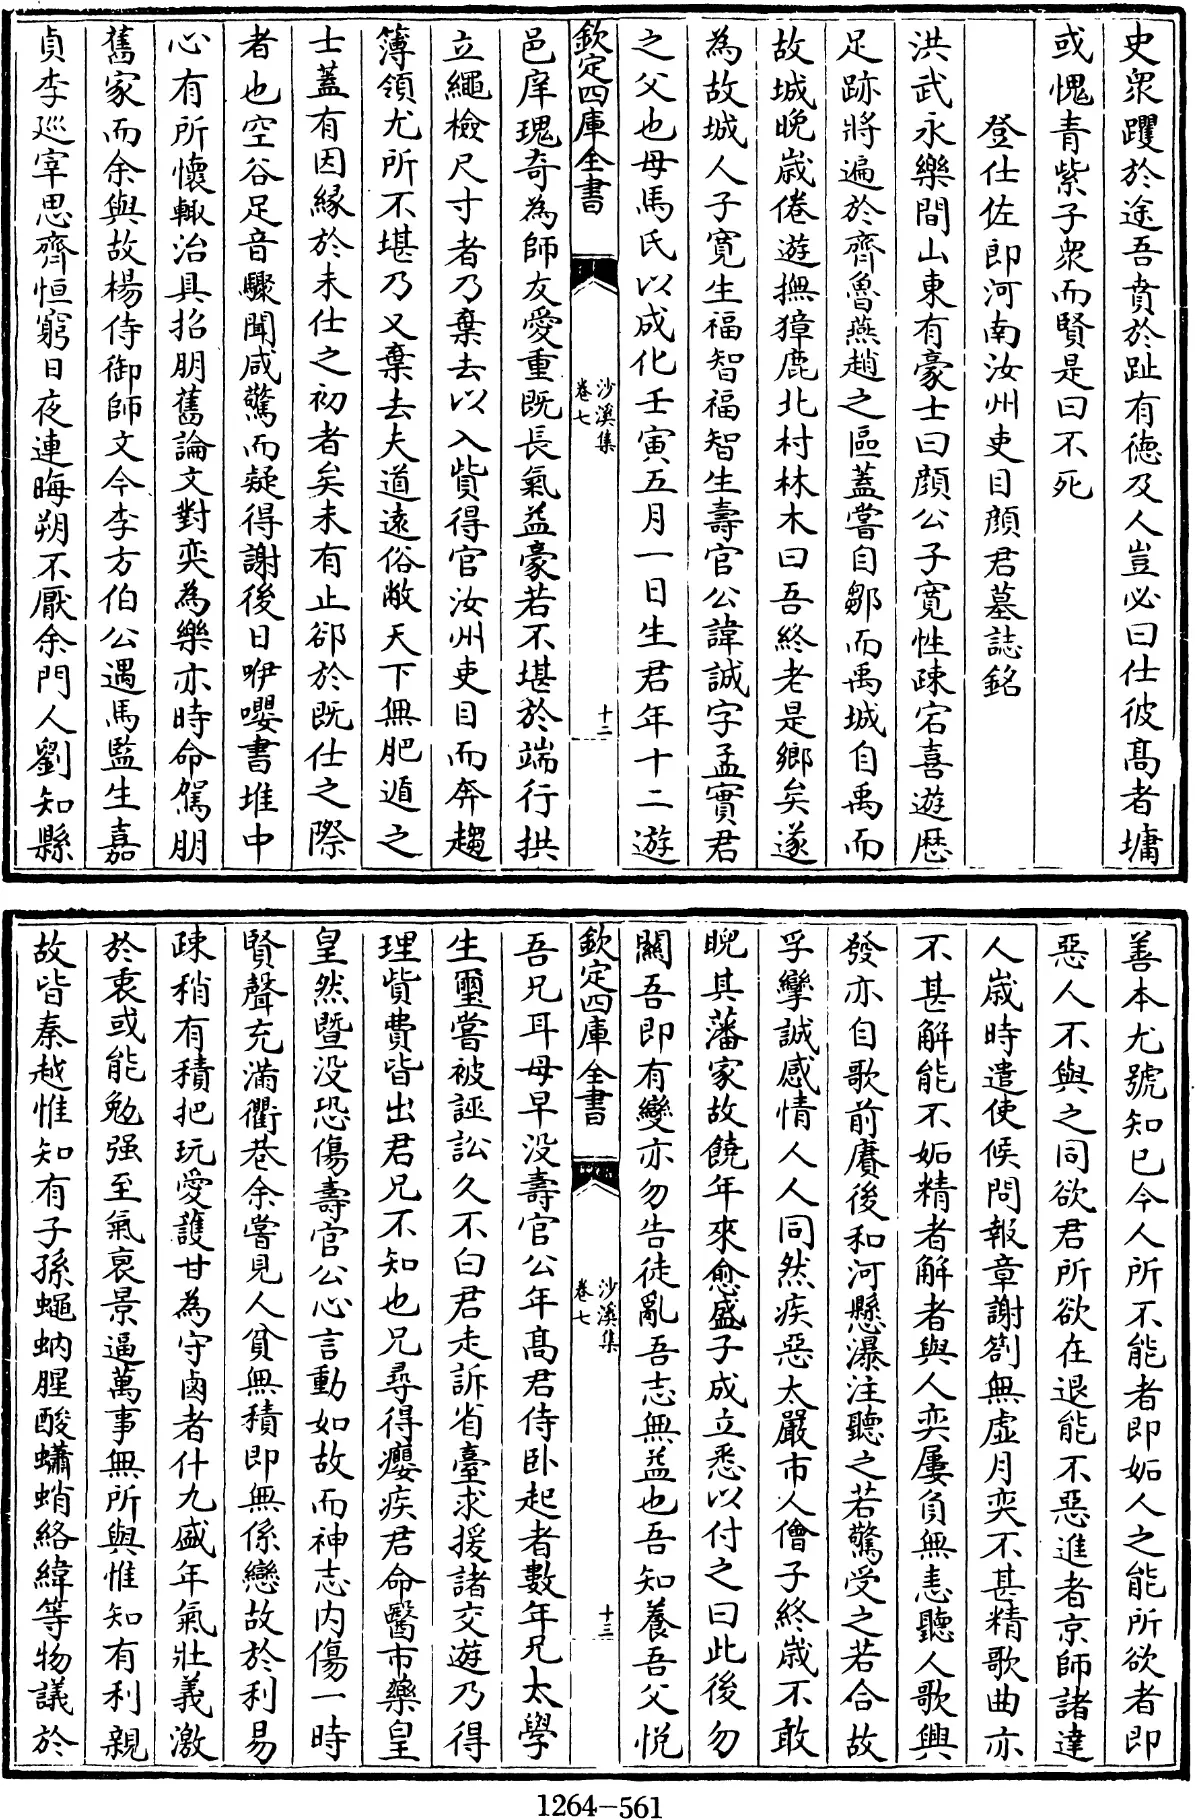 史衆躍於途吾賁於趾有德及人豈必曰仕彼髙者墉
或愧青紫子衆而賢是曰不死
登仕佐郎河南汝州吏目顔君墓誌銘
洪武永樂間山東有豪士曰顔公子寛性疎宕喜遊歴
足跡將遍於齊魯燕趙之區蓋嘗自鄒而禹城自禹而
故城晚嵗倦遊撫獐鹿北村林木曰吾終老是鄉矣遂
為故城人子寛生福智福智生壽官公諱誠字孟實君
之父也母馬氏以成化壬寅五月一日生君年十二遊
欽定四庫全書
沙溪集
卷七
十二
邑庠瑰奇為師友愛重既長氣益豪若不堪於端行拱
立繩檢尺寸者乃棄去以入貲得官汝州吏目而奔趨
簿領尤所不堪乃又棄去夫道逺俗敝天下無肥遁之
士蓋有因緣於未仕之初者矣未有止郤於既仕之際
者也空谷足音驟聞咸驚而疑得謝後日咿嚶書堆中
心有所懷輙治具招朋舊論文對奕為樂亦時命駕朋
舊家而余與故楊侍御師文今李方伯公遇馬監生嘉
貞李廵宰思齊恒窮日夜連晦朔不厭余門人劉知縣
善本尤號知已今人所不能者即妬人之能所欲者即
惡人不與之同欲君所欲在退能不惡進者京師諸達
人嵗時遣使候問報章謝劄無虚月奕不甚精歌曲亦
不甚解能不妬精者解者與人奕屢負無恚聽人歌興
發亦自歌前賡後和河懸瀑注聽之若驚受之若合故
孚攣誠感情人人同然疾惡太嚴市人儈子終嵗不敢
睨其藩家故饒年來愈盛子成立悉以付之曰此後勿
關吾即有變亦勿告徒亂吾志無益也吾知養吾父悦
欽定四庫全書
沙溪集
卷七
十三
吾兄耳母早没壽官公年髙君侍卧起者數年兄太學
生璽嘗被誣訟久不白君走訴省臺求援諸交遊乃得
理貲費皆出君兄不知也兄尋得癭疾君命醫市藥皇
皇然暨没恐傷壽官公心言動如故而神志内傷一時
賢聲充滿衢巷余嘗見人貧無積即無係戀故於利易
疎稍有積把玩愛護甘為守鹵者什九盛年氣壯義激
於衷或能勉强至氣衰景逼萬事無所與惟知有利親
故皆秦越惟知有子孫蠅蚋腥酸蠨蛸絡緯等物議於
1264—561